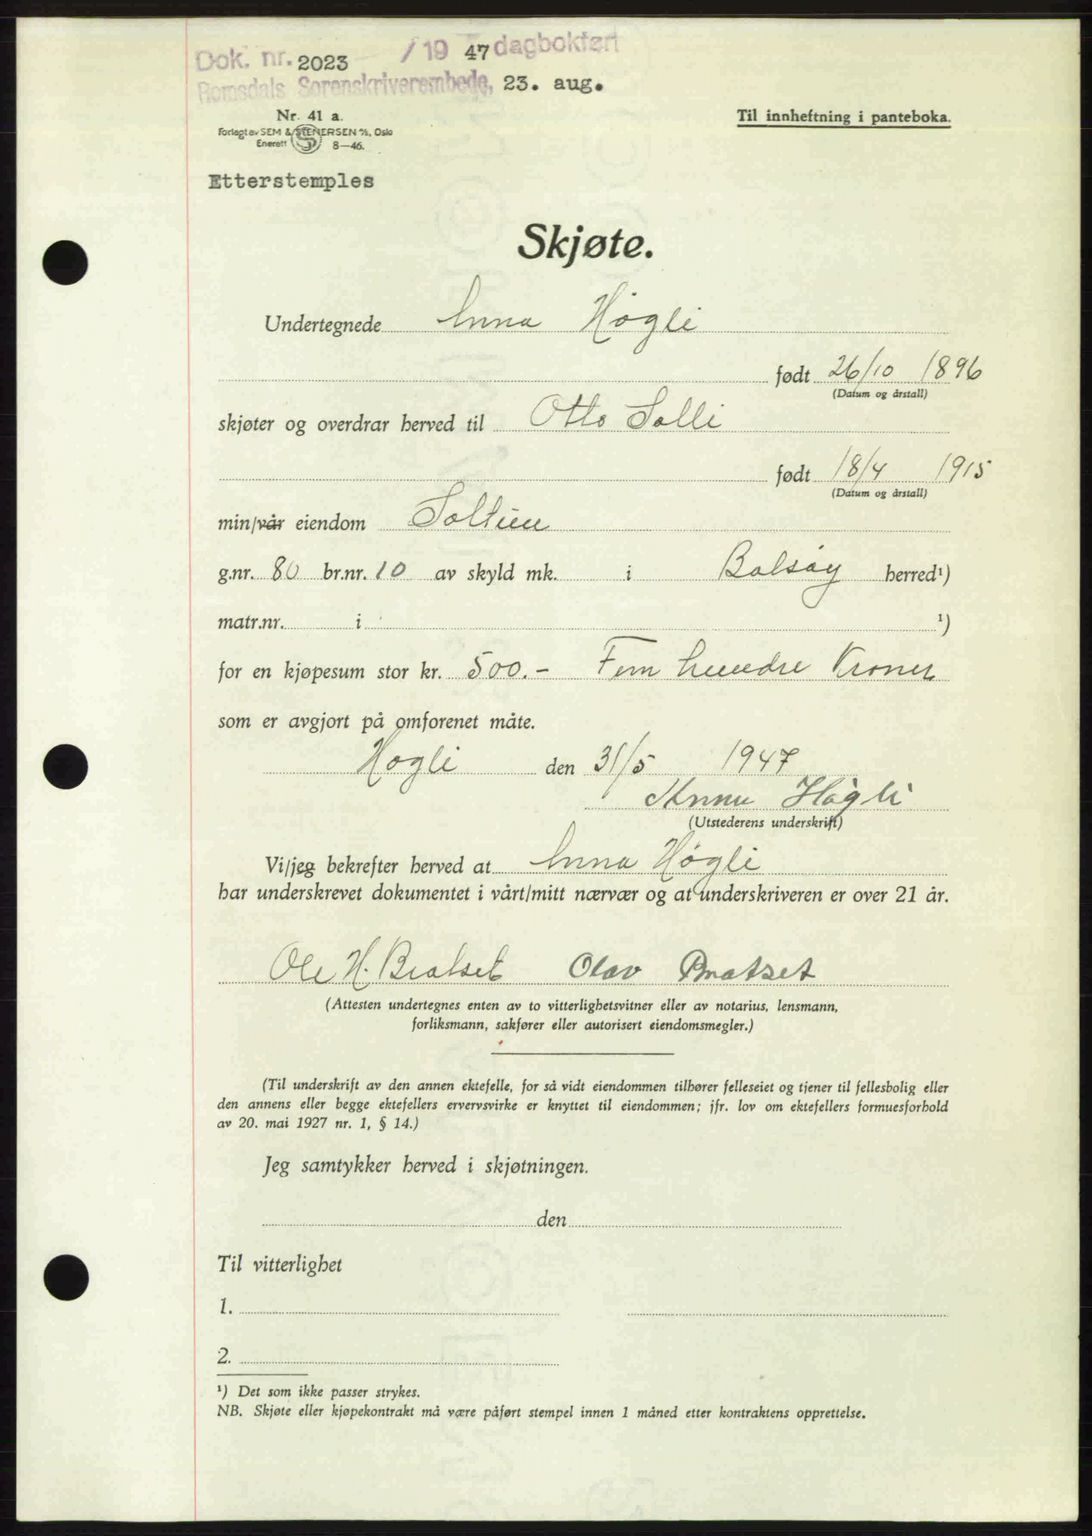 Dok. nr. 2023 /19 47 dagbokført
Romsdals Sorenskriverembede, 23. aug.
Nr. 41 a.
Forlagt av SEM & STENERSEN A/S, Oslo
Enerett 8—46.
Til innheftning i panteboka.
Etterstemples
Skjøte.
Undertegnede Anna Høgli
født 26/10 1896
(Datum og årstall)
skjøter og overdrar herved til Otto Solli
født 18/4 1915
(Datum og årstall)
min/vår eiendom
g.nr. 80 br.nr. 10 av skyld mk. i Bolsøy herred¹)
matr.nr. i ¹)
for en kjøpesum stor kr. 500.- Fem hundre Kroner
som er avgjort på omforenet måte.
Høgli den 31/5 1947
Anna Høgli
(Utstederens underskrift)
Vi/jeg bekrefter herved at Anna Høgli
har underskrevet dokumentet i vårt/mitt nærvær og at underskriveren er over 21 år.
Ole H. Bratset Olav Bratset
(Attesten undertegnes enten av to vitterlighetsvitner eller av notarius, lensmann,
forliksmann, sakfører eller autorisert eiendomsmegler.)
(Til underskrift av den annen ektefelle, for så vidt eiendommen tilhører felleseiet og tjener til fellesbolig eller
den annens eller begge ektefellers ervervsvirke er knyttet til eiendommen; jfr. lov om ektefellers formuesforhold
av 20. mai 1927 nr. 1, § 14.)
Jeg samtykker herved i skjøtningen.
den
Til vitterlighet
1.
2.
¹) Det som ikke passer strykes.
NB. Skjøte eller kjøpekontrakt må være påført stempel innen 1 måned etter kontraktens opprettelse.